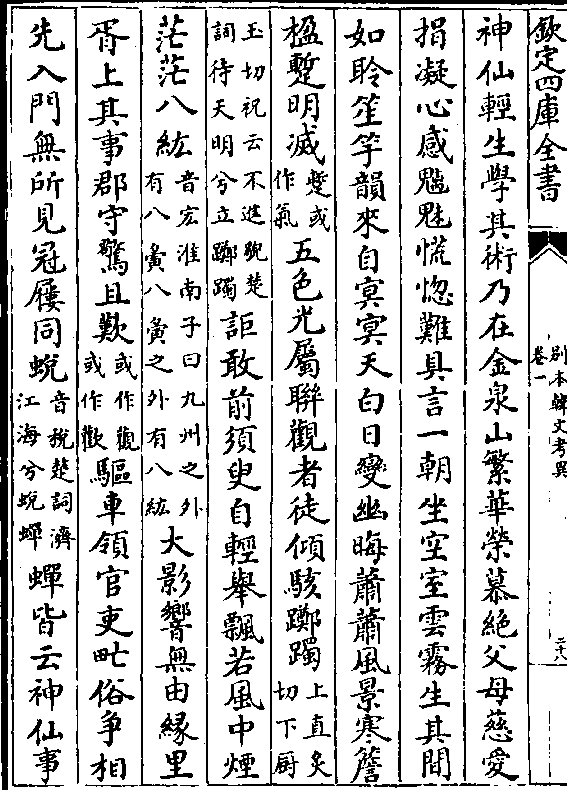 欽定四庫全書
別本韓文考異
卷一
二十八
神仙輕生學其術乃在金泉山繁華榮慕絶父母慈愛
捐凝心感魑魅慌惚難具言一朝坐空室雲霧生其間
如聆笙竽韻來自冥冥天白日變幽晦蕭蕭風景寒簷
楹蹔明滅蹔或作氣五色光屬聯觀者徒傾駭躑躅上直炙切下厨
玉切祝云不進貌楚詞待天明兮立躑躅詎敢前須臾自輕舉飄若風中煙
茫茫八紘音宏淮南子曰九州之外有八夤八夤之外有八紘大影響無由緣里
胥上其事郡守驚且歎或作觀或作歡驅車領官吏甿俗爭相
先入門無所見冠屨同蛻音稅楚詞濟江海兮蛻蟬蟬皆云神仙事